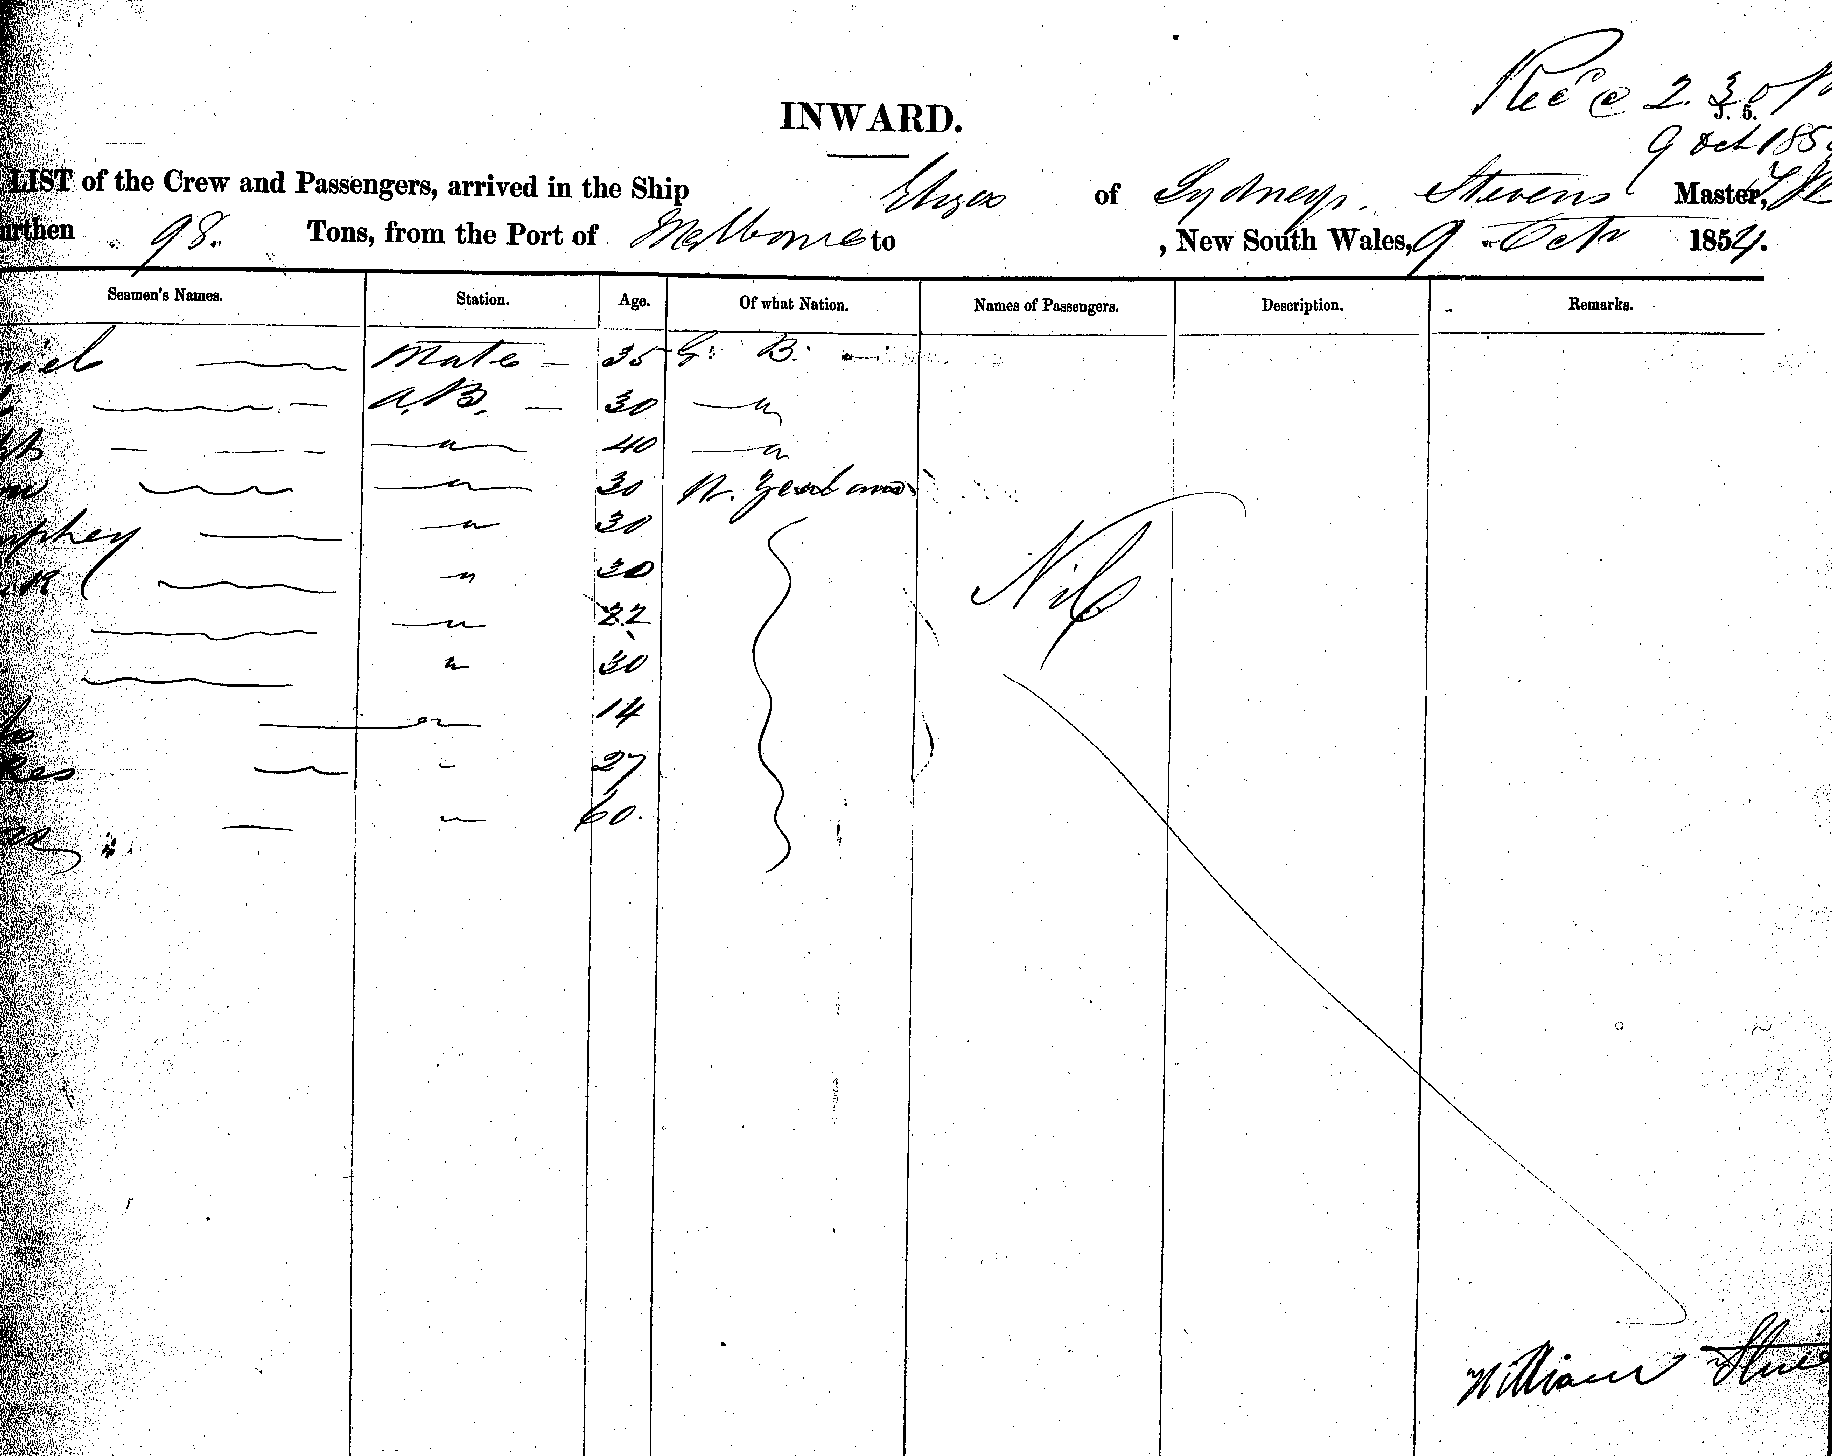 Rec'd @ 2.30 P
9 Oct 185
INWARD.
LIST of the Crew and Passengers, arrived in the Ship Eliza of Sydney, Stevens Master,
urthen 98. Tons, from the Port of Melbourne to , New South Wales, 9 Oct 1854.
Seamen's Names. Station. Age. Of what Nation. Names of Passengers. Description. Remarks.
niel Mate 35 G. B.
A.B. 30 "
" 40 "
" 30 N. Zealand
mphey " 30
" 30
" 22
Nil
" 30
" 14
kes " 27
" 60.
William